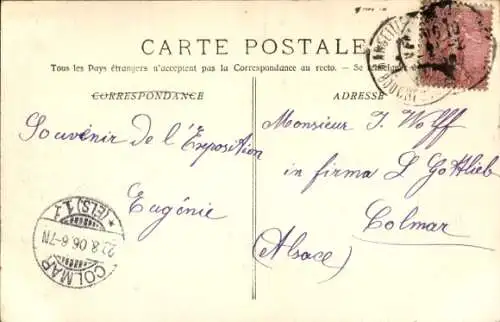 CARTE POSTALE
Tous les Pays étrangers n'acceptent pas la Correspondance au recto. — Se
CORRESPONDANCE
ADRESSE
Souvenir de l'Exposition
Eugénie
Monsieur J. Wolff
in firma L Gottlieb
Colmar
(Alsace)
COLMAR
22.8.06.6-7N
* (ELS) 1.